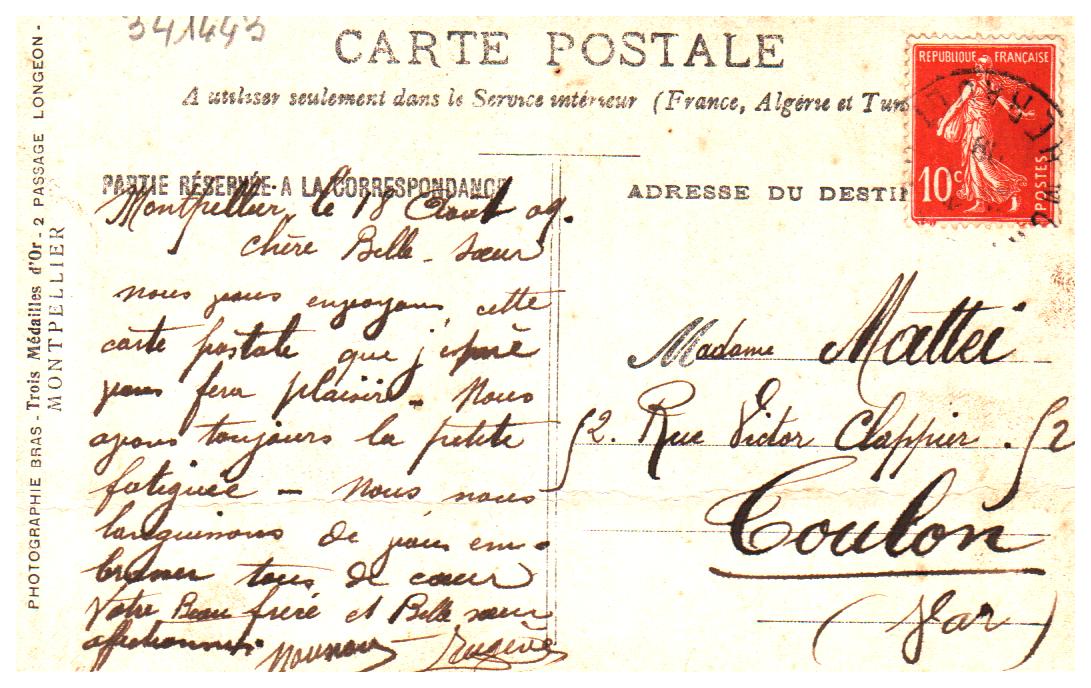 341443
CARTE POSTALE
A utiliser seulement dans le Service intérieur (France, Algérie et Tun
PARTIE RÉSERVÉE A LA CORRESPONDANCE
ADRESSE DU DESTIN
REPUBLIQUE FRANÇAISE
10c
POSTES
Montpellier, le 18 Août 09.
Chère Belle-sœur
nous vous envoyons cette
carte postale que j'espère
vous fera plaisir - Nous
avons toujours la petite
fatiguée - Nous nous
languissons de vous em-
brasser tous de cœur
Votre Beau frère et Belle sœur
affectionnés
Eugénie
Madame Mattei
52. Rue Victor Clappier. 52
Toulon
(Var)
PHOTOGRAPHIE BRAS - Trois Médailles d'Or - 2 PASSAGE LONGEON -
MONTPELLIER